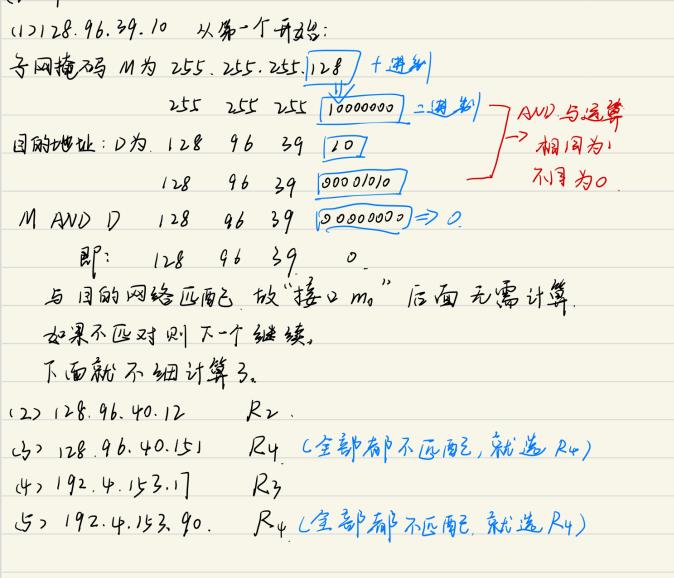 (1) 128.96.39.10 从第一个开始:
子网掩码 M为 255.255.255.128 十进制
255 255 255 10000000 二进制
目的地址: D为 128 96 39 10
128 96 39 00001010
AND 与运算
相同为1
不同为0.
M AND D 128 96 39 00000000 ⇒ 0.
即: 128 96 39 0
与目的网络匹配 故“接口m₀” 后面无需计算.
如果不匹对则下一个继续。
下面就不细计算了。
(2) 128.96.40.12 R2.
(3) 128.96.40.151 R4 (全部都不匹配, 就选R4)
(4) 192.4.153.17 R3
(5) 192.4.153.90. R4 (全部都不匹配. 就选R4)